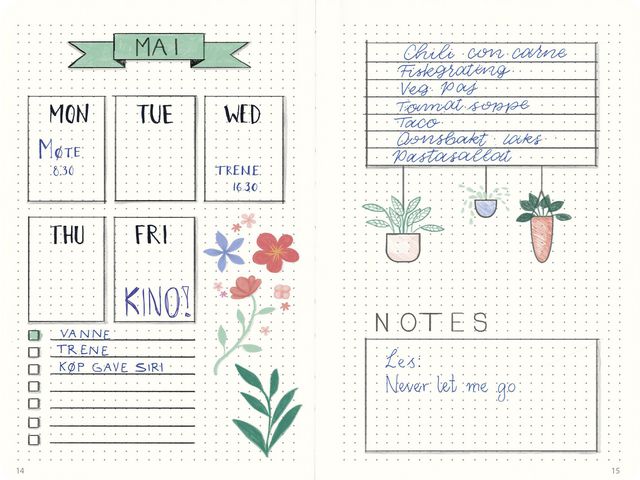 MAI
MON
TUE
WED
MØTE
8.30
TRENE
16.30
THU
FRI
KINO!
VANNE
TRENE
KØP GAVE SIRI
14
Chili con carne
Fiskgrateng
Veg. pas
Tomat soppe
Taco
Ovnsbakt laks
Pastasallat
NOTES
Les:
Never let me go
15